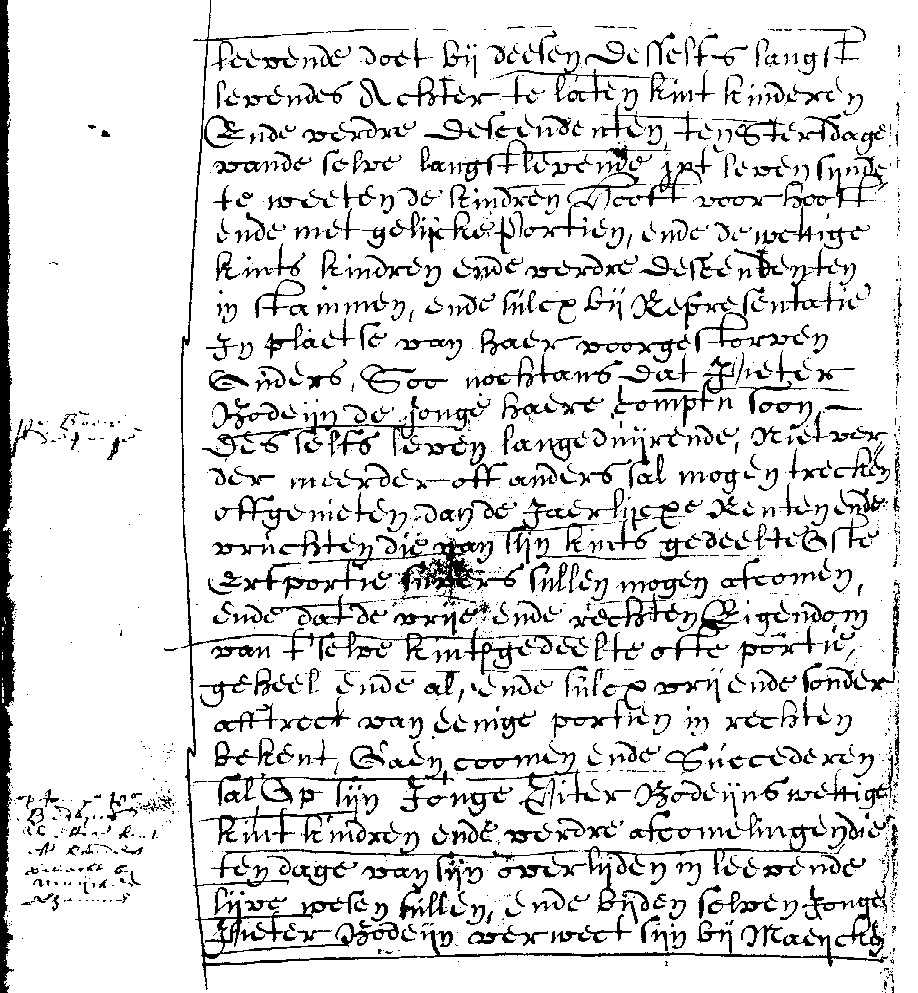 leevende doet bij deesen desselfs langst
levendes Achter te laten kint kinderen
Ende verdre descendenten, ten Sterfdage
vande selve langstlevende int leven sijnde
te weeten de kindren Hooft voor hooft
ende met gelijcke Portien, ende de wettige
kints kindren ende verdre descendenten
in stammen, ende sulcx bij Representatie
In plaetse van haer voorgestorven
Ouders, Soo nochtans dat Pieter
Bodeijn de Jonge haere Comptn soon
desselfs leven langeduijrende, Niet ver
der meerder off anders sal mogen trecken
off genieten, dan de Jaerlijcxe Renten ende
vruchten die van sijn kints gedeelte Ofte
Erfportie suvers sullen mogen afcomen,
ende dat de vrije ende rechten Eigendom
van t'selve kintsgedeelte ofte portie,
geheel ende al, ende sulcx vrij ende sonder
afftreck van eenige portien in rechten
bekent, Gaen coomen ende Succederen
sal Op sijn Jonge Piter Bodeijns wettige
kint kindren ende verdre afcomelingen die
ten dage van sijn overlijden in leevende
lijve wesen sullen, ende bijden selven Jonge
Pieter Bodeijn verwect sijn bij Maeijcken